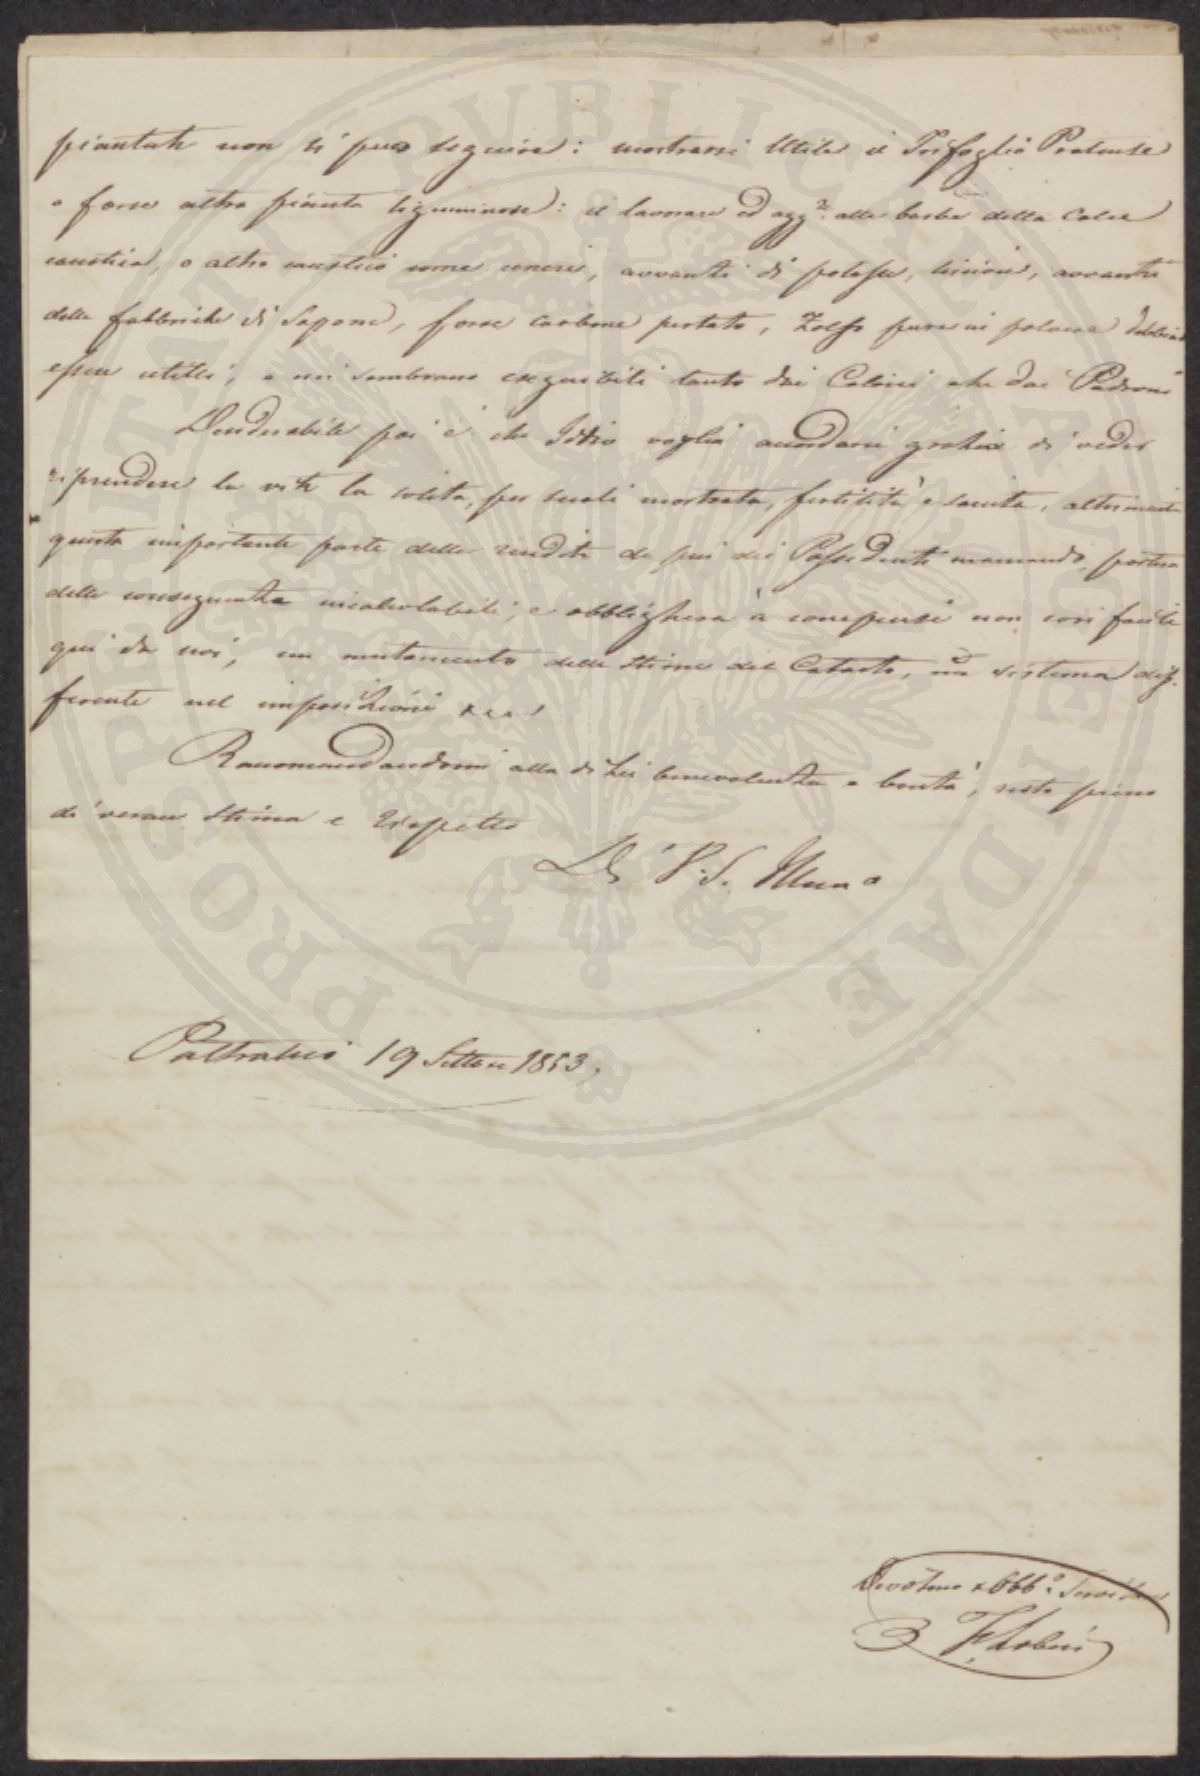 piantate non si può seguire: mostrarsi Utile il Trifoglio Pratense
o forse altra pianta liguminosa: il lavorare ed agg.e alle barbe della Calce
caustica, o altro caustico come cenere, avvanti di potassa, lisciva, avvanti
delle fabbriche di Sapone, forse carbone pestato, Zolfo pure in polvere debbono
essere utilli, e mi sembrano eseguibili tanto dai Coloni che dai Padroni
Desiderabile poi è che Iddio voglia accordarci grazia di veder
riprendere la vite la solita, per secoli mostrata, fertilità e sanità, altrimenti
questa importante parte delle rendite de più dei Possidenti mancando, porterà
delle conseguenze incalcolabili; e obbligherà à compensi non così facili
qui da noi, un mutamento delle stime del Catasto, un sistema dif-
ferente nel imposizioni
Raccomandandomi alla di Lei benevolenza e bontà, resto pieno
di verace stima e rispetto
Di V. S. Illma
19 Settbre 1853.
Devotmo e Obbo. Servitore
PROSPERITATI PVBLICAE AVGENDAE